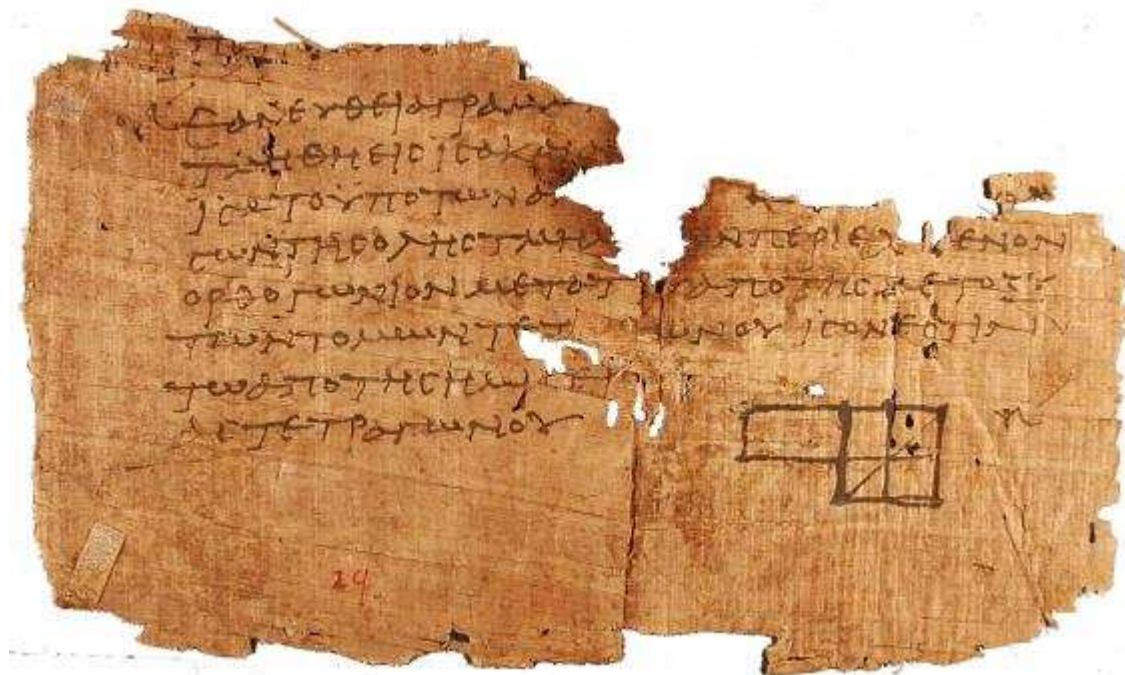 ΕΑΝΕΥΘΕΙΑΓΡΑΜΜ
ΤΜΗΘΗΕΙΣΙΣΑΚΑΙ
ΤΟΥΠΟΤΩΝΑΝ
ΣΩΝΤΗΣΟΛΗΣΤΜΗΜ ΩΝΠΕΡΙΕΧ ΜΕΝΟΝ
ΟΡΘΟΓΩΝΙΟΝΜΕΤΑΤ ΑΠΟΤΗΣΜΕΤΟΞΥ
ΤΩΝΤΟΜΩΝΤΕΤ ΩΝΟΥΙΣΟΝΕΣΤΙΝ
ΤΩΑΠΟΤΗΣΗΜΙΣΕΙ
ΑΣΤΕΤΡΑΓΩΝΟΥ
29